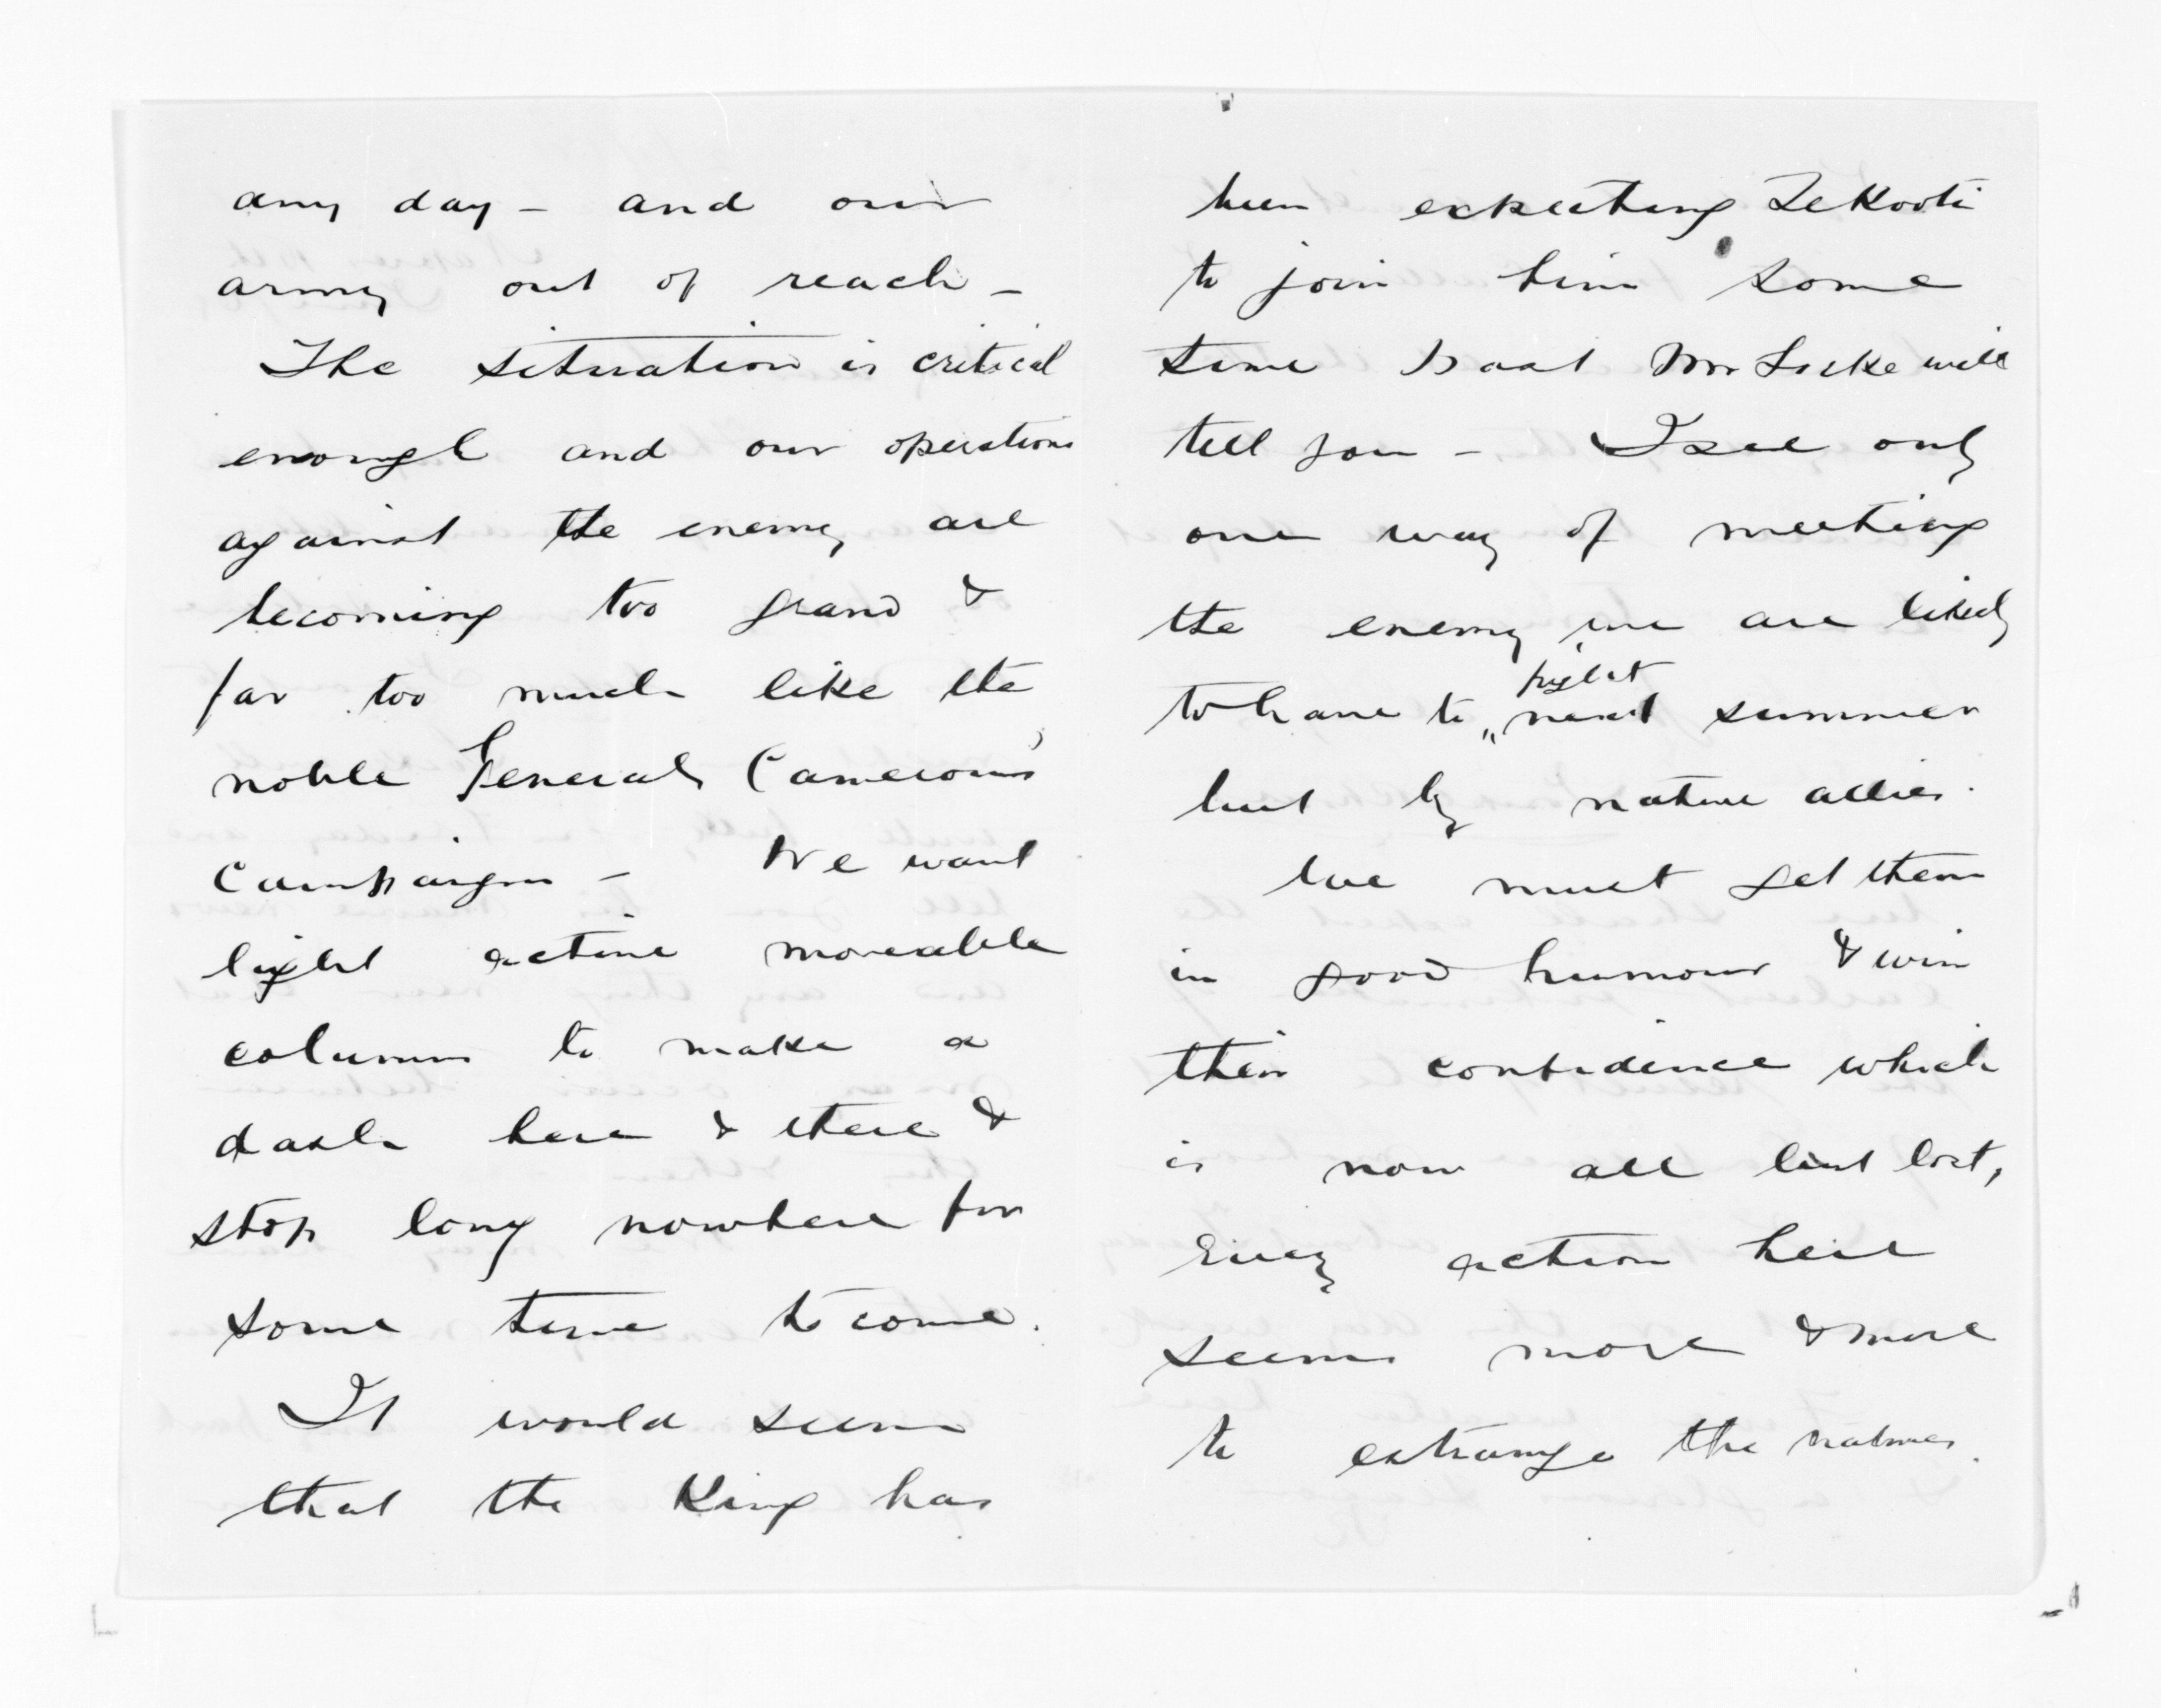 any day – and our
army out of reach –
The situation is critical
enough and our operations
against the enemy are
becoming too grand &
far too much like the
noble General Cameron's
Campaigns – We want
light active moveable
columns to make a
dash here & there &
stop long nowhere for
some time to come.
It would seem
that the King has
been expecting Te Kooti
to join him some
time past Mr Locke will
tell you – I see only
one way of meeting
the enemy we are likely
fight
to have to " next summer
but by native allies.
We must get them
in good humour & win
their confidence which
is now all but lost,
Every action here
seems more & more
to estrange the natives.